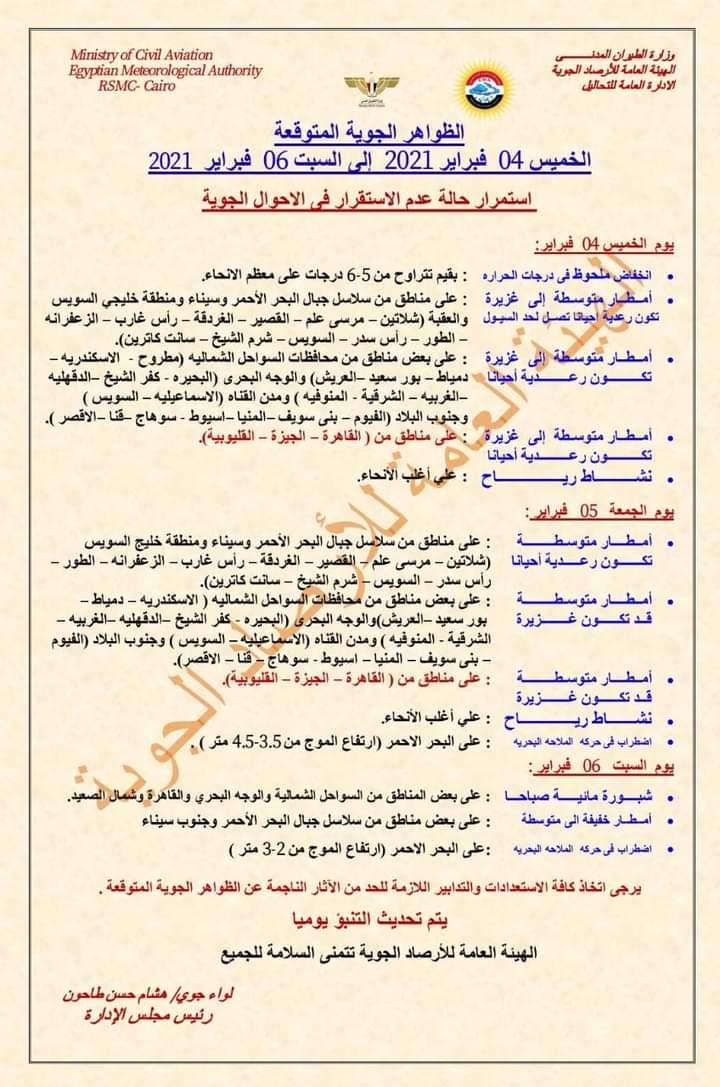 Ministry of Civil Aviation
Egyptian Meteorological Authority
RSMC- Cairo
وزارة الطيران المدنـــى
الهيئة العامة للأرصاد الجوية
الادارة العامة للتحاليل
الظواهر الجوية المتوقعة
الخميس 04 فبراير 2021 إلى السبت 06 فبراير 2021
استمرار حالة عدم الاستقرار فى الاحوال الجوية
يوم الخميس 04 فبراير:
انخفاض ملحوظ فى درجات الحراره : بقيم تتراوح من 5-6 درجات على معظم الانحاء.
أمـطـار متوسطة إلى غزيرة : على مناطق من سلاسل جبال البحر الأحمر وسيناء ومنطقة خليجي السويس
تكون رعدية أحيانا تصل لحد السيول والعقبة (شلاتين – مرسى علم – القصير – الغردقة – رأس غارب – الزعفرانه
– الطور – رأس سدر – السويس – شرم الشيخ – سانت كاترين).
أمـطـار متوسطة إلى غزيرة : على بعض مناطق من محافظات السواحل الشماليه (مطروح - الاسكندريه –
تكــون رعــدية أحيانا دمياط – بور سعيد –العريش) والوجه البحرى (البحيره - كفر الشيخ –الدقهليه
–الغربيه – الشرقية - المنوفيه ) ومدن القناه (الاسماعيليه – السويس )
وجنوب البلاد (الفيوم – بنى سويف –المنيا –اسيوط - سوهاج –قنا –الاقصر ).
أمـطـار متوسطة إلى غزيرة : على مناطق من ( القاهرة – الجيزة – القليوبية).
تكــون رعــدية أحيانا
نشــاط ريـــاح : علي أغلب الأنحاء.
يوم الجمعة 05 فبراير :
أمـطـار متوسطــة : على مناطق من سلاسل جبال البحر الأحمر وسيناء ومنطقة خليج السويس
تكــون رعــدية أحيانا (شلاتين – مرسى علم – القصير – الغردقة – رأس غارب – الزعفرانه – الطور –
رأس سدر – السويس – شرم الشيخ – سانت كاترين).
أمـطـار متوسطــة : على بعض مناطق من محافظات السواحل الشماليه ( الاسكندريه – دمياط –
قد تكــون غــزيرة بور سعيد –العريش)والوجه البحرى (البحيره - كفر الشيخ –الدقهليه –الغربيه –
الشرقية - المنوفيه ) ومدن القناه (الاسماعيليه – السويس ) وجنوب البلاد (الفيوم
– بنى سويف – المنيا – اسيوط - سوهاج – قنا – الاقصر).
أمـطـار متوسطــة : على مناطق من ( القاهرة – الجيزة – القليوبية).
قد تكــون غــزيرة
نشــاط ريـــاح : علي أغلب الأنحاء.
اضطراب فى حركه الملاحه البحريه : على البحر الاحمر (ارتفاع الموج من 3.5-4.5 متر ) .
يوم السبت 06 فبراير :
شبـورة مائيـة صباحـا : على بعض المناطق من السواحل الشمالية والوجه البحري والقاهرة وشمال الصعيد.
أمـطـار خفيفة الى متوسطة : على بعض مناطق من سلاسل جبال البحر الأحمر وجنوب سيناء
اضطراب فى حركه الملاحه البحريه :على البحر الاحمر (ارتفاع الموج من 2-3 متر )
يرجى اتخاذ كافة الاستعدادات والتدابير اللازمة للحد من الآثار الناجمة عن الظواهر الجوية المتوقعة .
يتم تحديث التنبؤ يوميا
الهيئة العامة للأرصاد الجوية تتمنى السلامة للجميع
لواء جوي/ هشام حسن طاحون
رئيس مجلس الإدارة
الهيئة العامة للأرصاد الجوية